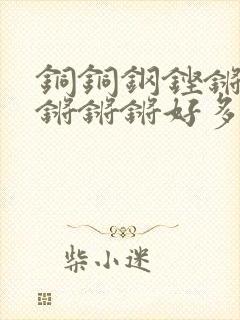 銅銅鋼鏗鏘
鏘鏘鏘好多
柴小迷